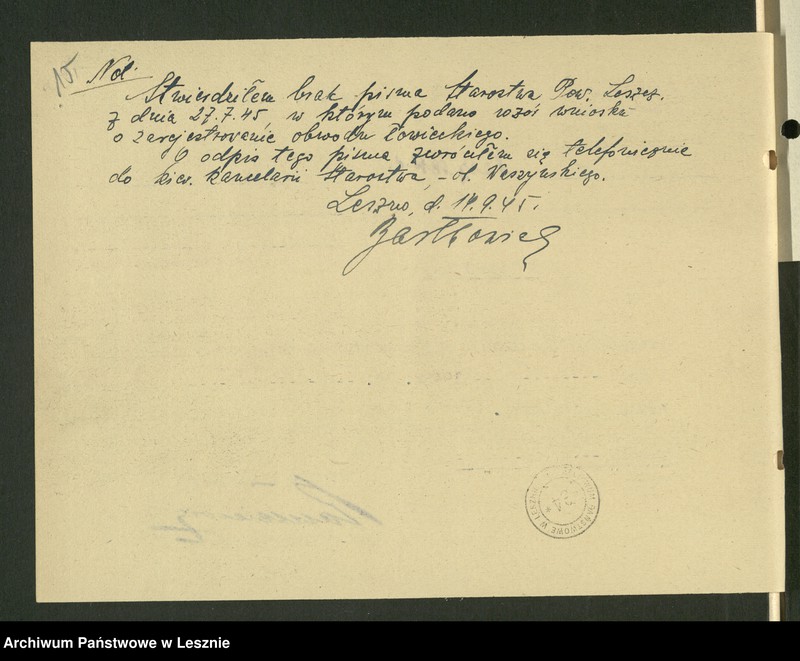 15.
Not.
Stwierdziłem brak pisma Starostwa Pow. Leszcz.
z dnia 27.7.45, w którym podano wzór wniosku
o zarejestrowanie obwodu łowieckiego.
O odpis tego pisma zwróciłem się telefonicznie
do kier. kancelarii Starostwa, - ob.
Leszno, d. 14.9.45.
ARCHIWUM PAŃSTWOWE W LESZNIE
Archiwum Państwowe w Lesznie